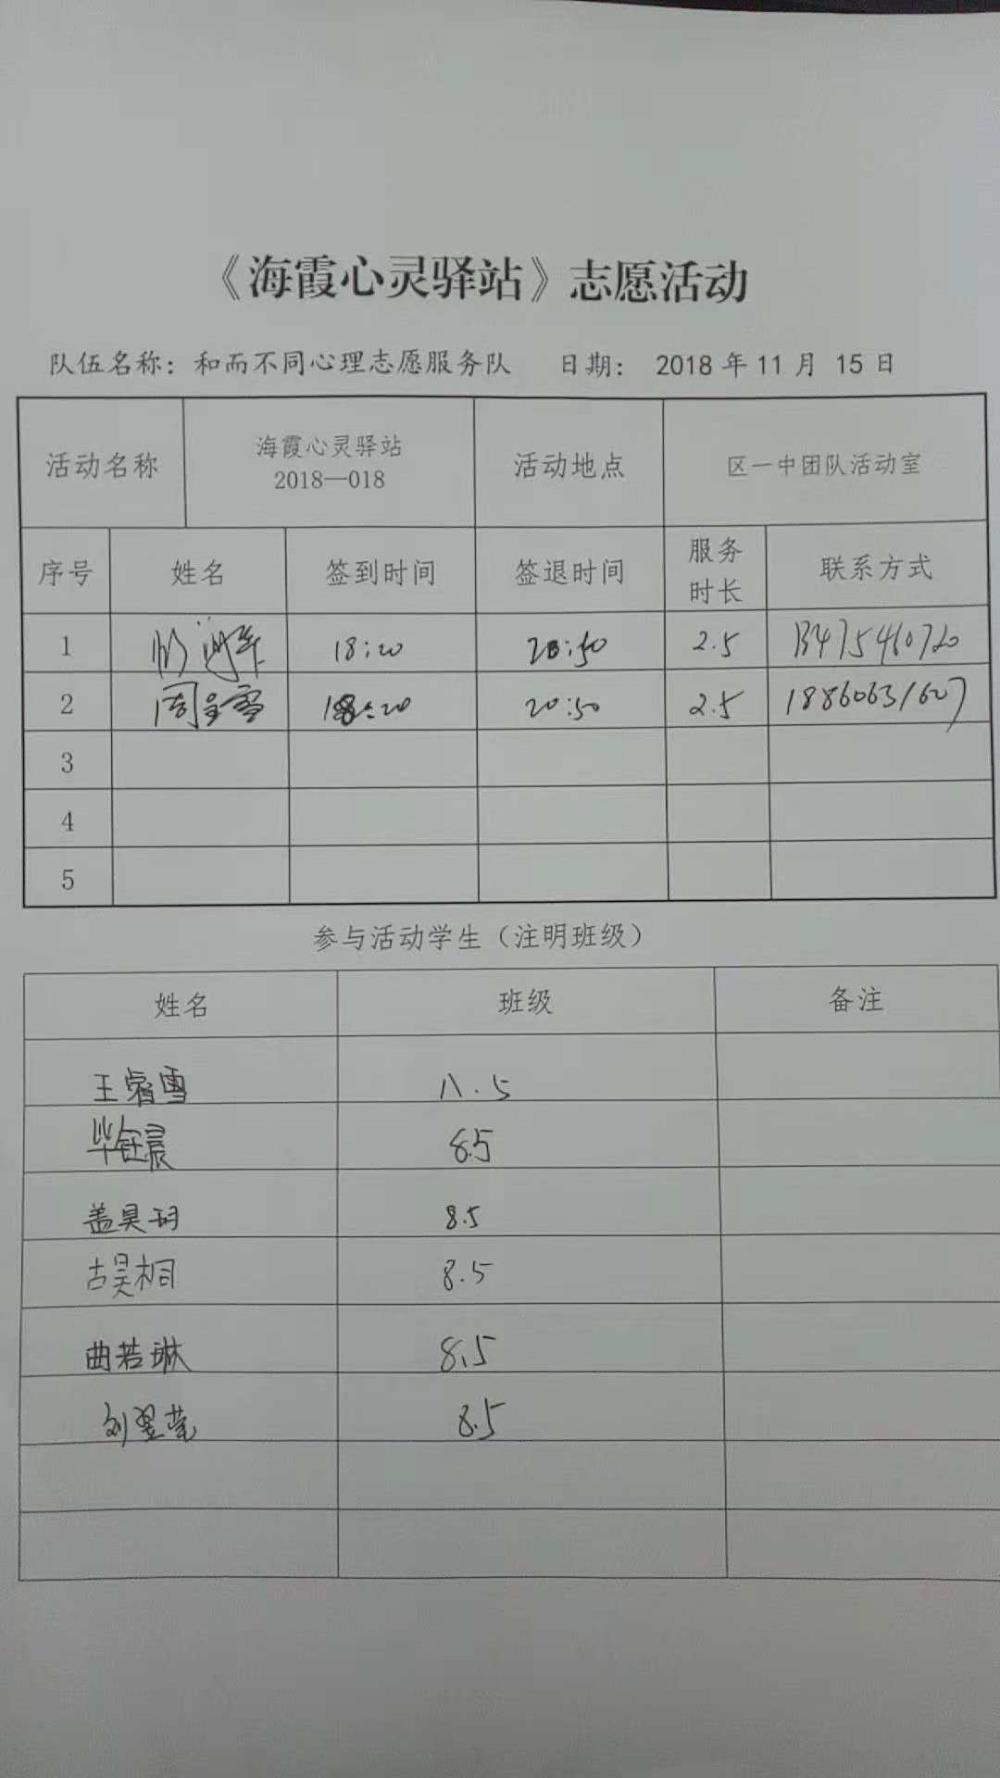 《海霞心灵驿站》志愿活动
队伍名称：和而不同心理志愿服务队 日期： 2018 年 11 月 15 日
活动名称 海霞心灵驿站 2018—018 活动地点 区一中团队活动室
序号 姓名 签到时间 签退时间 服务时长 联系方式
1 18:20 20:50 2.5
2 18:20 20:50 2.5 18860631607
3
4
5
参与活动学生（注明班级）
姓名 班级 备注
王睿雪 八.5
毕钰晨 8.5
盖昊玥 8.5
古昊桐 8.5
曲若琳 8.5
刘翌莹 8.5